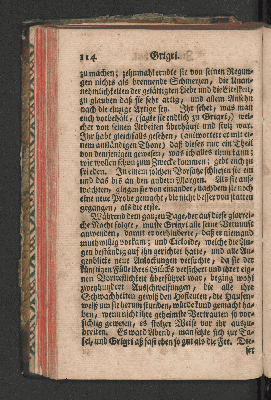 114 Grigri.
zu machen; zehnmahl erndte sie von seinen Regun-
gen nichts als brennende Schmerzen, die Unan-
nehmlichkeiten der gesättigten Liebe und die Eitelkeit,
zu glauben daß sie sehr artig, und allem Ansehn
nach die einzige Artige sey. Ihr sehet, was man
euch vorbehält, (sagte sie endlich zu Grigri,) wel-
cher von seinen Arbeiten überhäuft und stolz war.
Ihr habt gleichfalls gesehen, (antwortete er mit ei-
nem anständigen Thone) daß dieses nur ein Theil
von demjenigen gewesen, was ich alles thun kann;
wir wollen schon zum Zwecke kommen; gebt euch zu-
frieden. In einem solchen Vorsatze schliefen sie ein
und das biß an den andern Morgen. Als sie auf-
wachten, giengen sie von einander, nachdem sie noch
eine neue Probe gemacht, die nicht besser von statten
gegangen, als die erste.
Während dem ganzen Tage, der auf diese glorrei-
che Nacht folgte, mußte Grigri alle seine Vernunft
anwenden, womit er verhinderte, daß er niemand
muthwillig vorkam; und Cleloide, welche die Au-
gen beständig auf ihn gerichtet hatte, und alle Au-
genblicke neue Anlockungen versuchte, da sie der
künftigen Fülle ihres Glücks versichert und ihrer eige-
nen Vortrefflichkeit überführet war, begieng wohl
hundert Ausschweifungen, die alle ihre
Schwachheiten gewiß den Hofleuten, die Haufen-
weiß um sie herum stunden, würde kund gemacht ha-
ben, wenn nicht ihre geheimste Vertrauten so vor-
sichtig gewesen, es stolzer Weise vor ihr auszu-
breiten. Es ward Abend, man setzte sich zur Ta-
fel, und Grigri aß fast eben so gut als die Fee. Die-
ser